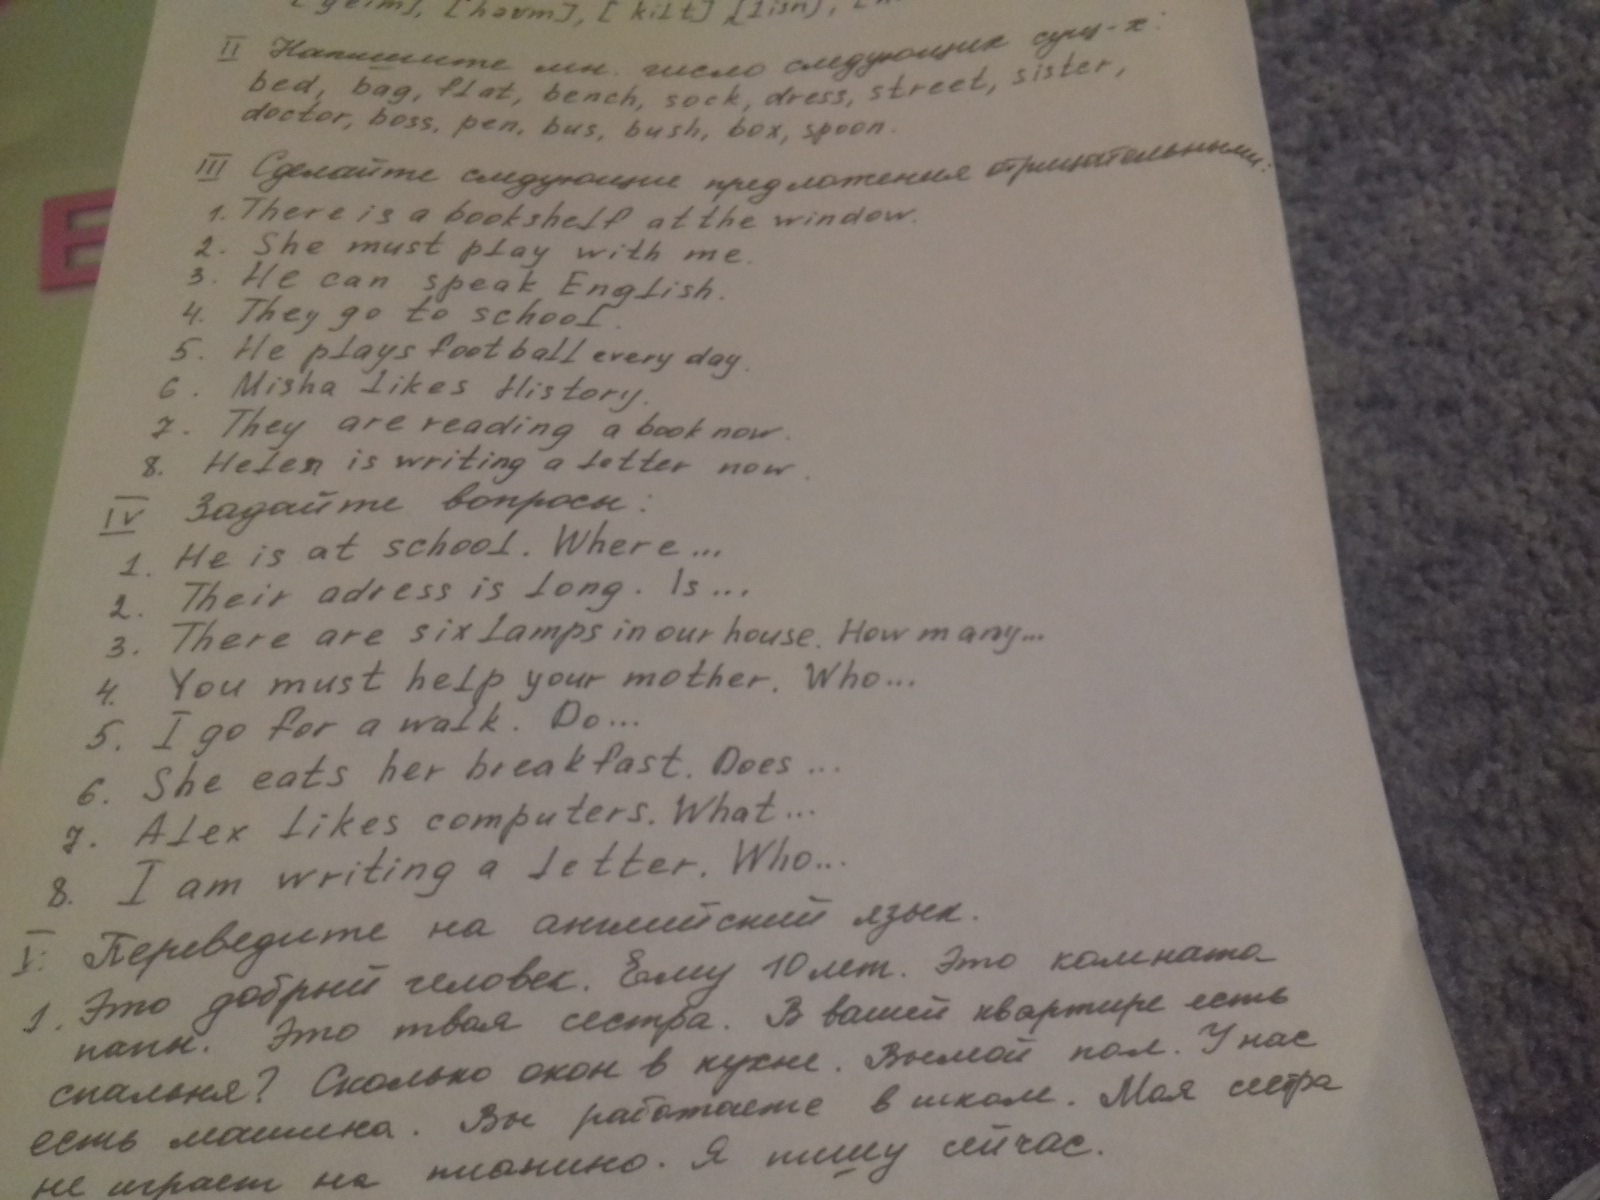 [geim], [həʊm], [kilt], [lisn],
II Напишите мн. число следующих сущ-х:
bed, bag, flat, bench, sock, dress, street, sister,
doctor, boss, pen, bus, bush, box, spoon.
III Сделайте следующие предложения отрицательными:
1. There is a bookshelf at the window.
2. She must play with me.
3. He can speak English.
4. They go to school.
5. He plays football every day.
6. Misha likes History.
7. They are reading a book now.
8. Helen is writing a letter now.
IV Задайте вопросы:
1. He is at school. Where...
2. Their adress is long. Is...
3. There are six lamps in our house. How many...
4. You must help your mother. Who...
5. I go for a walk. Do...
6. She eats her breakfast. Does...
7. Alex likes computers. What...
8. I am writing a letter. Who...
V. Переведите на английский язык.
1. Это добрый человек. Ему 10 лет. Это комната
папы. Это твоя сестра. В вашей квартире есть
спальня? Сколько окон в кухне. Вымой пол. У нас
есть машина. Вы работаете в школе. Моя сестра
не играет на пианино. Я пишу сейчас.